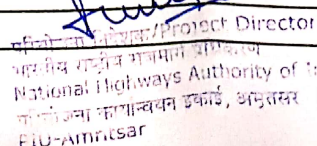 परियोजना निदेशक/Project Director
भारतीय राष्ट्रीय राजमार्ग प्राधिकरण
National Highways Authority of I
परियोजना कार्यान्वयन इकाई, अमृतसर
PIU-Amritsar